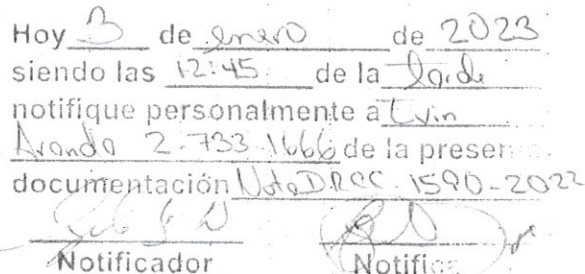 Hoy 3 de enero de 2023
siendo las 12:45 de la tarde
notifique personalmente a Evin
Aranda 2-733-1666 de la presen
documentación Nota DRCC-1590-2022
Notificador Notific